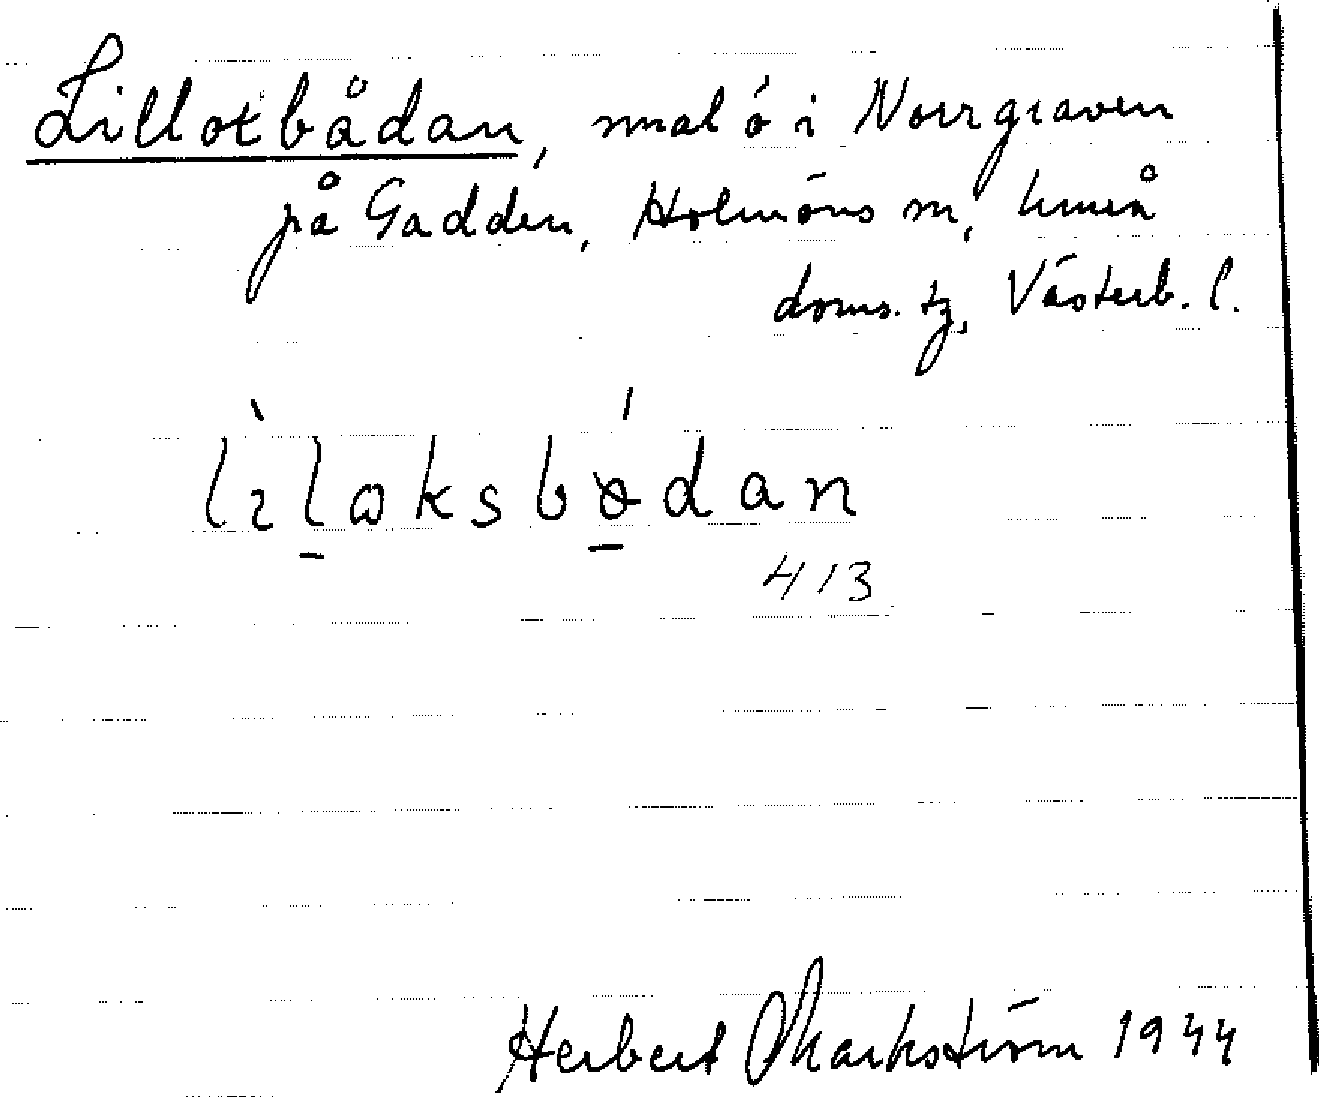 Lillotbådan, smal ö i Norrgraven
på Gadden, Holmöns sn, Umeå
doms. tg, Västerb. l.
lìlaksbódan
413
Herbert Markström 1944